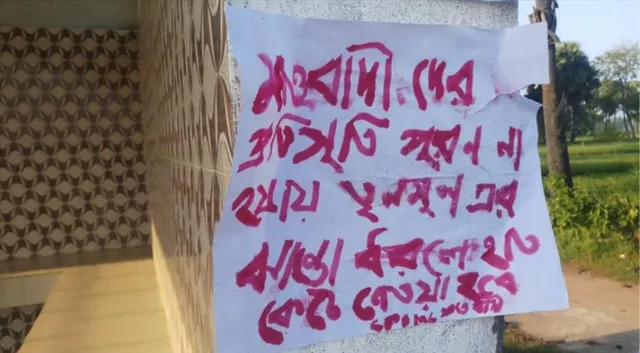 মাওবাদী দের
প্রতিস্রুতি পূরণ না
হওয়ায় তৃনমূল এর
ঝান্ডা ধরলে হাত
কেটে নেওয়া হবে